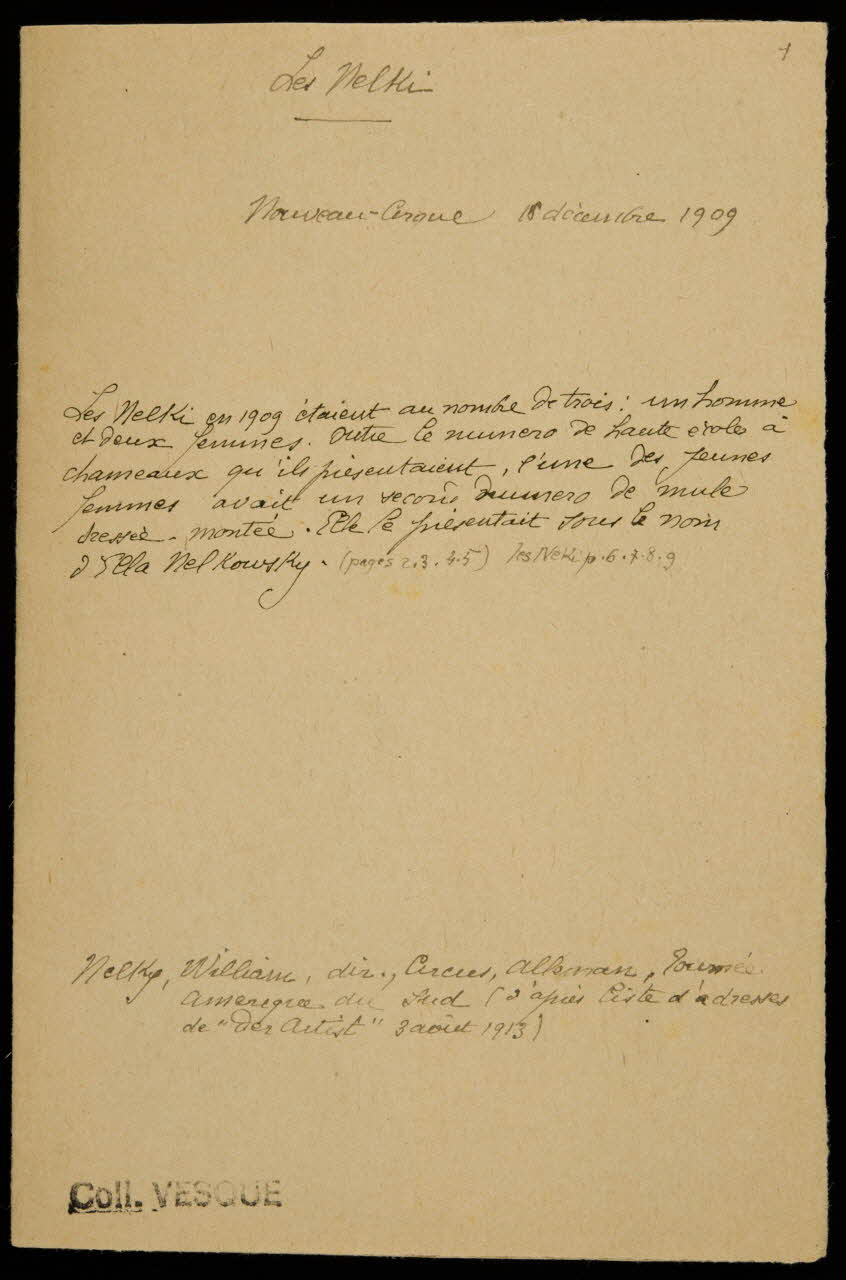 1
Les Nelki
Nouveau-Cirque 18 décembre 1909
Les Nelki en 1909 étaient au nombre de trois : un homme
et deux femmes. Outre le numero de haute école à
chameaux qu'ils présentaient, l'une des jeunes
femmes avait un second numero de mule
dressée - montée. Elle le présentait sous le nom
d'Ella Nelkowsky. (pages 2.3.4.5) les Nelki p.6.7.8.9
Nelky, William, dir., Circus, Tournée
Amerique du Sud (d'après liste d'adresses
de "Der Artist" 3 août 1913)
Coll. VESQUE